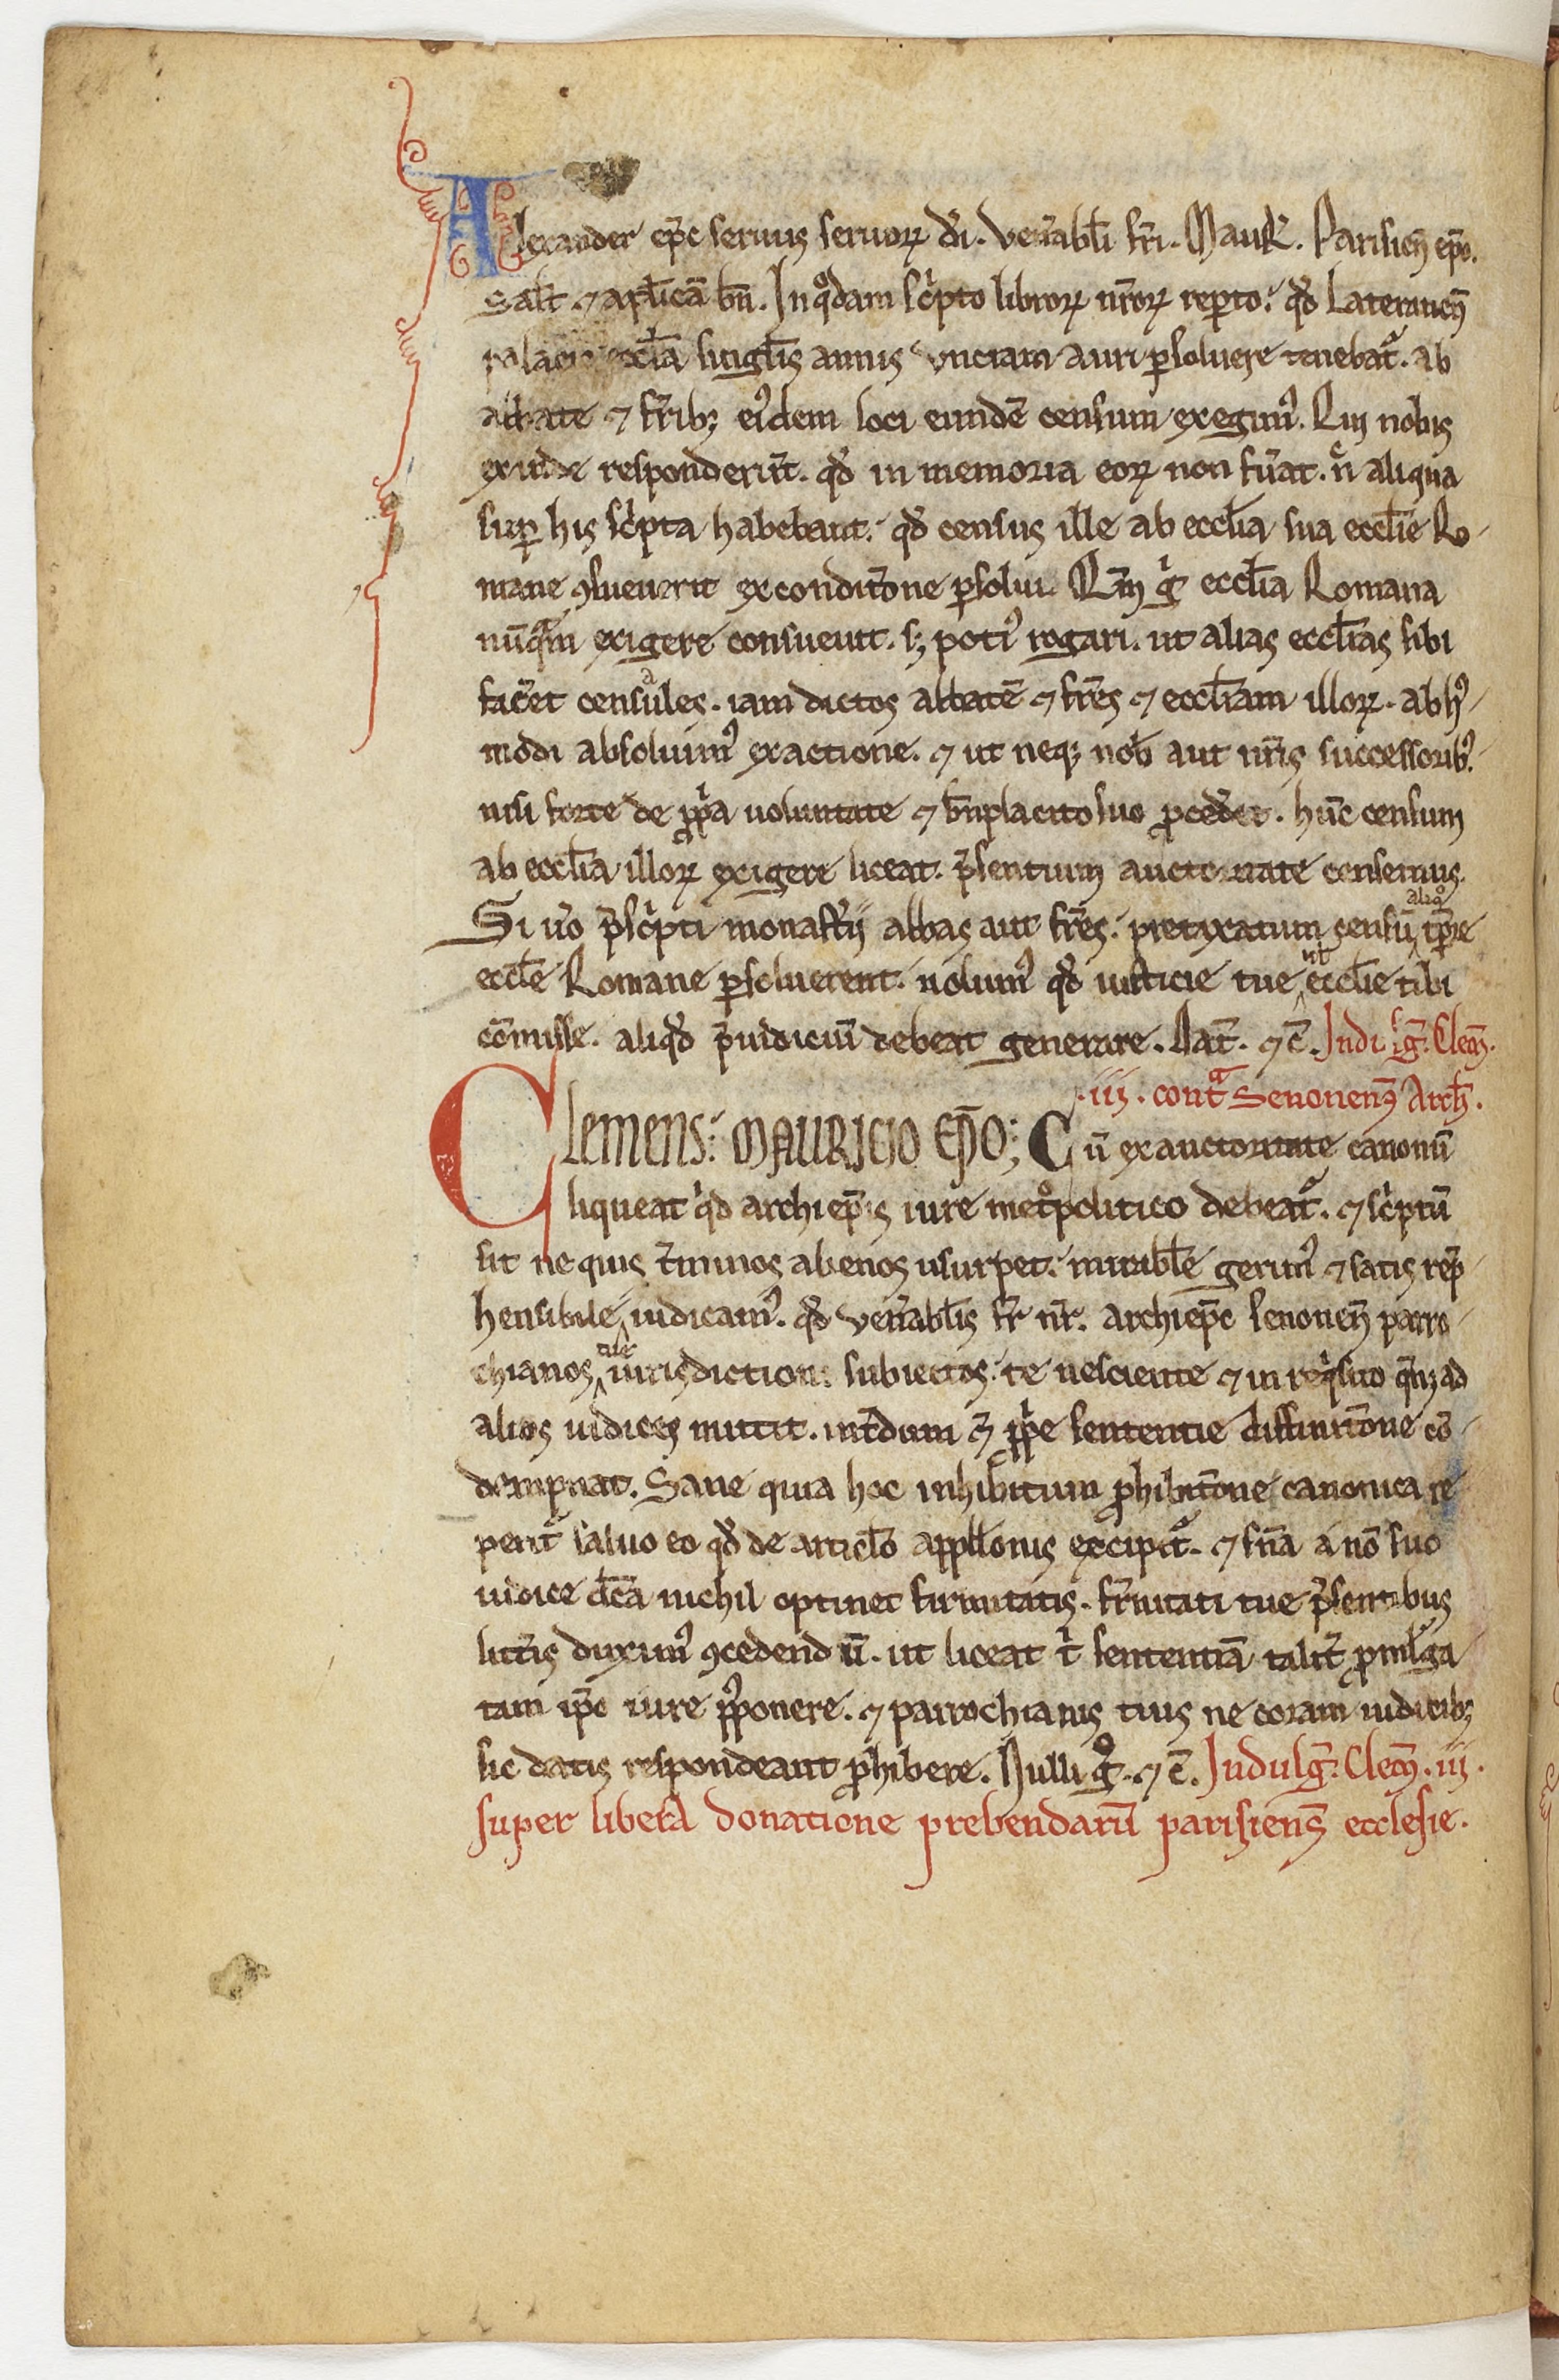 Alexander ep̄c seruus seruoꝝ d̄i. Ven̄abl̄i fr̄i. Maur̄. Parisien̄ ep̄o.
Sal̄t ⁊ apl̄icā bn̄. In qͦdam sc̍pto libroꝝ nr̄oꝝ rep̱to. qđ Lateranen̄
palacio eccl̄ia singl̄is annis vnciam auri ꝑsoluere tenebat᷑. ab
abbate ⁊ fr̄ibꝫ eiꝰdem loci eundē censum exegimꝰ. Qui nobis
exinde responderūt. qđ in memoria eoꝝ non fūat. nͨ aliqua
suꝑ his sc̍pta habebant. qđ census ille ab eccl̄ia sua eccl̄ie Ro-
mane ꝯsueuerit ex condit̄one ꝑsolui. Qm̄ g̍ eccl̄ia Romana
nūqͣm exigere consueuit. sꝫ potiꝰ rogari. ut alias eccl̄ias sibi
facēt censuales. iam dictos abbatē ⁊ fr̄es ⁊ eccl̄iam illoꝝ. ab hꝰ-
modi absoluimꝰ exactione. ⁊ ut neqꝫ nob̄ aut nr̄is successoribꝰ.
nisi forte de ꝓp̍a uoluntate ⁊ bn̄placito suo ꝓced̄et. hūc censum
ab eccl̄ia illoꝝ exigere liceat. p̄sentium auctoritate censemus.
Si ūo p̄sc̍pti monast̄ii abbas aut fr̄es. prefixatum censū aliqͦ tp̄re
eccl̄e Romane ꝑsoluerent. nolumꝰ qđ iusticie tue ul̄ eccl̄ie tibi
cōmisse. aliqđ p̄iudiciū debeat generare. Dat̄. ⁊ c̄. Indulḡ. Clem̄.
.iii. contͣ Senonen̄ꝰ Arch̄.
Clemens. MAURICIO EP̄O; Cū ex auctoritate canonū
liqueat qͥd archiep̄is iure metͦpolitico debeat᷑. ⁊ sc̍ptū
sit ne quis t̄minos alienos usurpet. mirabl̄e gerimꝰ ⁊ satis rep̄-
hensibile iudicamꝰ. qđ ven̄abl̄is fr̄ nr̄. archiep̄c senonen̄ parro-
chianos tue iurisdictioni subiectos. te nesciente ⁊ in reqͥsito qn̄ꝫ ad
alios iudices mittit. int̄dum ⁊ ꝓp̍e sententie diffinit̄one cō-
dempnat. Sane quia hoc inhibitum ꝓhibit̄one canonica re-
perit᷑ saluo eo qđ de articl̄o appll̄onis excipit᷑. ⁊ sn̄ia a nō suo
iudice dc̄a nichil optinet firmitatis. fr̄nitati tue p̄sentibus
litt̄is duximꝰ ꝯcedendū. ut liceat t̍ sententiā talit̄ ꝓmulga-
tam ip̄o iure ꝓp̄ponere. ⁊ parrochianis tuis ne coram iudicibꝫ
sic datis respondeant ꝓhibere. Nulli gͦ. ⁊ c̄. Indulḡ. Clem̄. iii.
super libera donatione prebendarū parisiens̄ ecclesie.